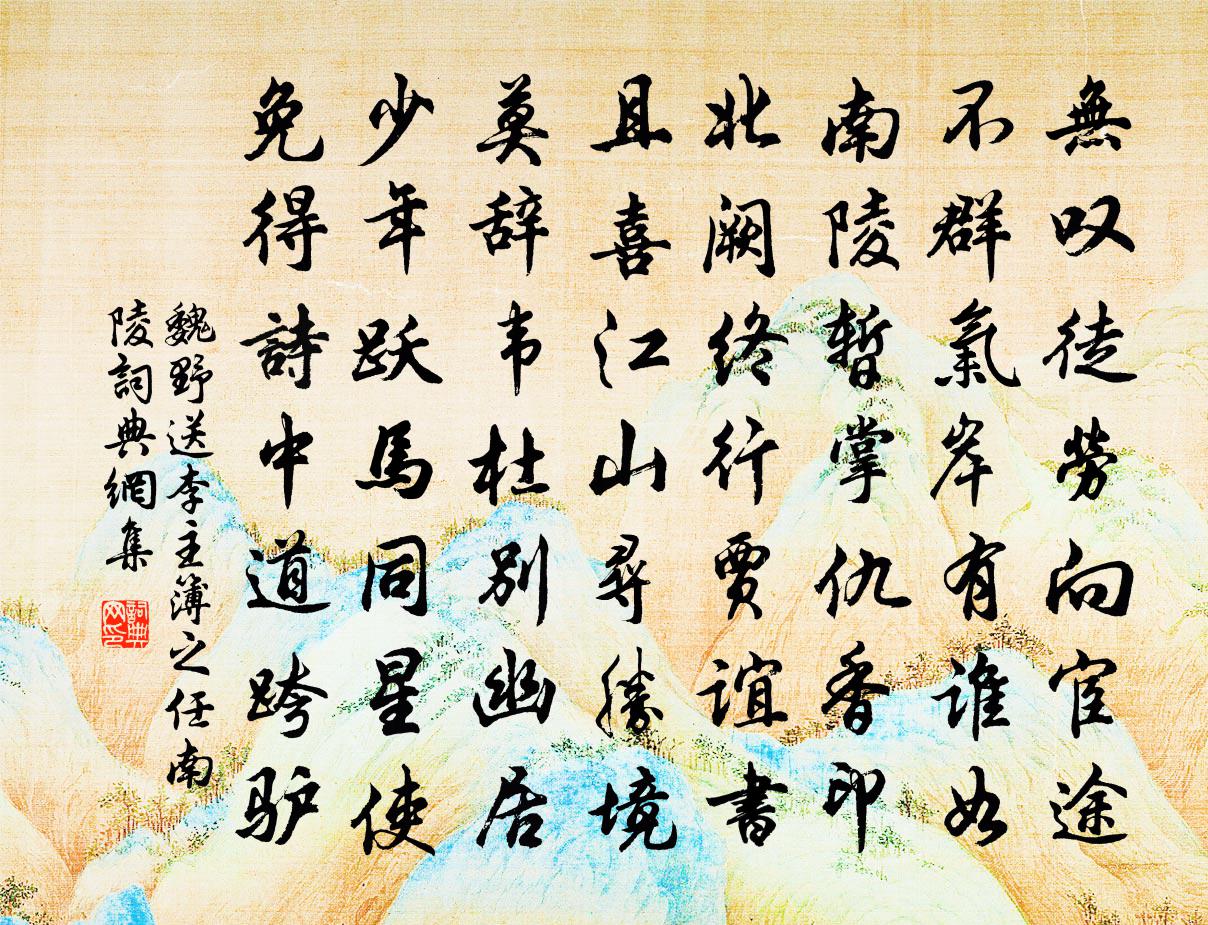 無叹徒勞向宦途
不群氣岸有誰如
南陵暫掌仇香印
北阙终行贾誼書
且喜江山尋勝境
莫辞韦杜别幽居
少年跃馬同星使
免得詩中道跨驴
魏野送李主簿之任南
陵詞典網集
詞典网印